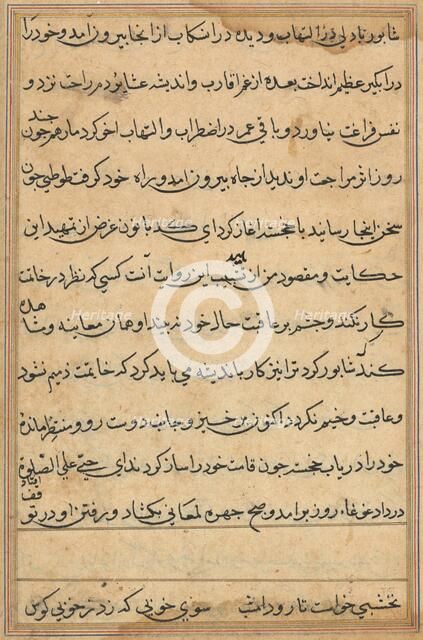 شاپور با دلی در التهاب و دیده در اسکاب از انجا بیرون آمد و خود را
در ابگیر عظیم انداخت بعده از غم اقارب و اندیشه عشایر دم راحت نزد و
نفس فراغت نیاورد و باقی عمر در اضطراب و التهاب اخر کرد مار هم چون چند
روز اثر مراجعت او ندید از چاه بیرون آمد و راه خود گرفت طوطی چون
سخن اینجا رسانید با خجسته اغاز کرد ای کدبانون غرض از تمهید این
حکایت و مقصود من از تشبیب این روایت آنست کسی که نظر در خاتمت
کار نکند و چشم بر عاقبت حال خود نه نهد او همان معاینه و مشاهده
کند که شاپور کرد ترا نیز کار باندیشه می باید کرد که خاتمت ذمیم نشود
و عاقبت وخیم نکردد اکنون من خیز و جانب دوست رو و منتظر مانده
خود را دریاب خجسته چون قامت خود را ساز کرد ندای حی علی الصلوة
در داد غوغاء روز بر آمد و صبح چهره لمعانی بکشاد و رفتن او در توقف افتاد
نخشبی خواست تا رود امشب سوی خوبی که زد ز خوبی کوس